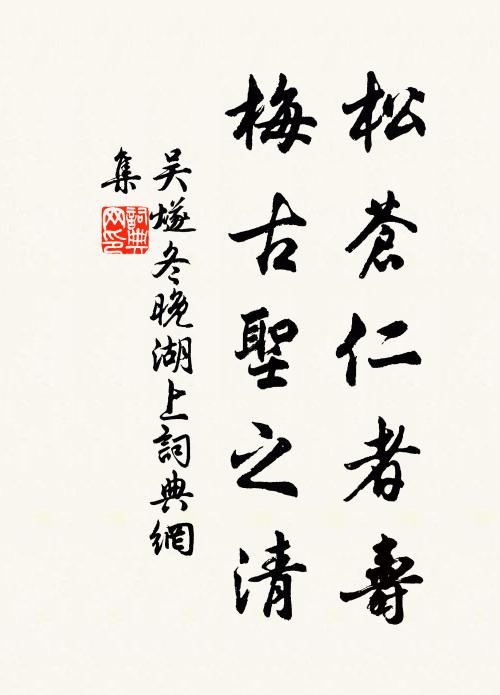 松蒼仁者壽
梅古聖之清
吴燧冬晚湖上詞典網
集
詞典
网印